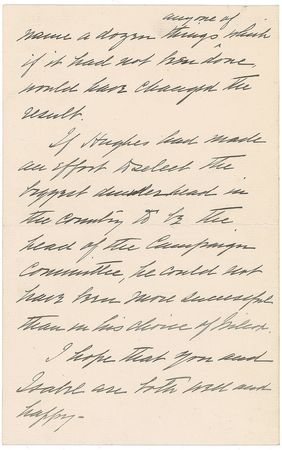 anyone of
name a dozen things which
if it had not been done
would have changed the
result.
If Hughes had made
an effort to select the
biggest dunderhead in
the country to be the
head of the Campaign
Committee, he could not
have been more successful
than in his choice of Wilcox.
I hope that you and
Isabel are both well and
happy-